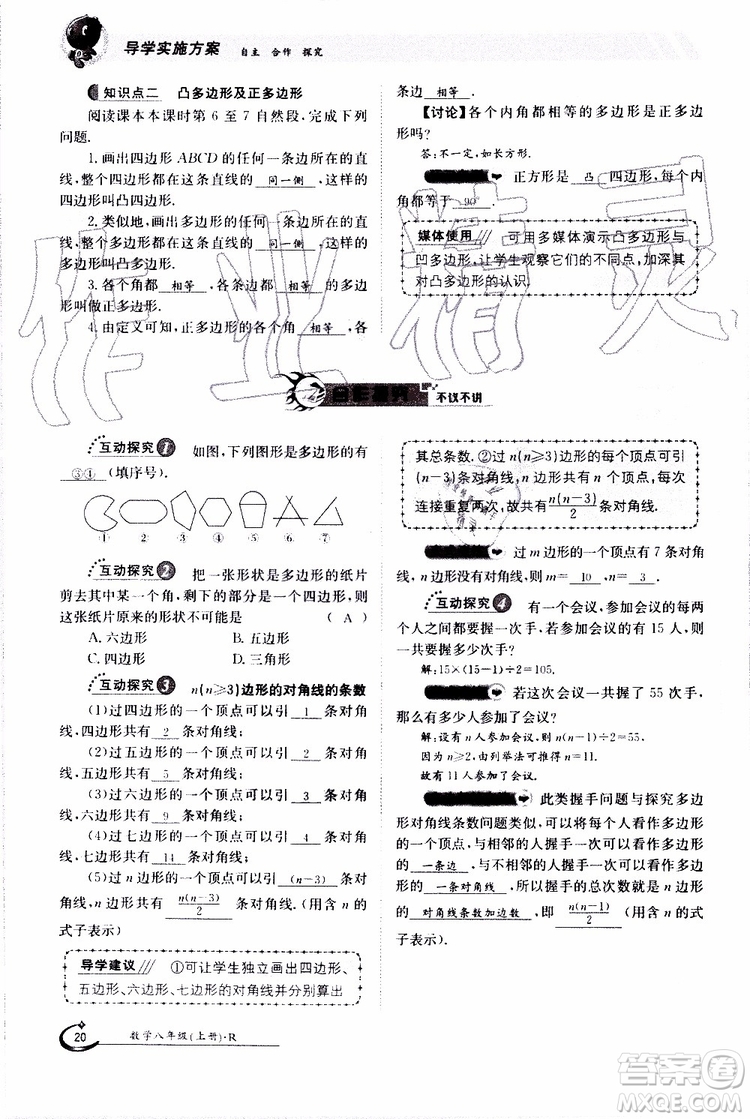 导学实施方案 自主 合作 探究
知识点二 凸多边形及正多边形
阅读课本本课时第 6 至 7 自然段,完成下列
问题.
1. 画出四边形 ABCD 的任何一条边所在的直
线,整个四边形都在这条直线的 同一侧 ,这样的
四边形叫凸四边形.
2. 类似地,画出多边形的任何一条边所在的直
线,整个多边形都在这条直线的 同一侧 ,这样的
多边形叫凸多边形.
3. 各个角都 相等 ,各条边都 相等 的多边
形叫做正多边形.
4. 由定义可知,正多边形的各个角 相等 ,各
条边 相等 .
【讨论】各个内角都相等的多边形是正多边
形吗?
答:不一定,如长方形.
正方形是 凸 四边形,每个内
角都等于 90° .
媒体使用 可用多媒体演示凸多边形与
凹多边形,让学生观察它们的不同点,加深其
对凸多边形的认识.
不议不讲
互动探究 1 如图,下列图形是多边形的有
③④ (填序号).
① ② ③ ④ ⑤ ⑥ ⑦
互动探究 2 把一张形状是多边形的纸片
剪去其中某一个角,剩下的部分是一个四边形,则
这张纸片原来的形状不可能是 ( A )
A. 六边形 B. 五边形
C. 四边形 D. 三角形
互动探究 3 n(n⩾3)边形的对角线的条数
(1)过四边形的一个顶点可以引 1 条对角
线,四边形共有 2 条对角线;
(2)过五边形的一个顶点可以引 2 条对角
线,五边形共有 5 条对角线;
(3)过六边形的一个顶点可以引 3 条对角
线,六边形共有 9 条对角线;
(4)过七边形的一个顶点可以引 4 条对角
线,七边形共有 14 条对角线;
(5)过 n 边形的一个顶点可以引 (n-3) 条对
角线,n 边形共有 n(n-3)/2 条对角线. (用含 n 的
式子表示)
导学建议 ①可让学生独立画出四边形、
五边形、六边形、七边形的对角线并分别算出
其总条数. ②过 n(n⩾3)边形的每个顶点可引
(n-3)条对角线,n 边形共有 n 个顶点,每次
连接重复两次,故共有 n(n-3)/2 条对角线.
过 m 边形的一个顶点有 7 条对角
线,n 边形没有对角线,则 m= 10 ,n= 3 .
互动探究 4 有一个会议,参加会议的每两
个人之间都要握一次手,若参加会议的有 15 人,则要
握多少次手?
解:15×(15-1)÷2=105.
若这次会议一共握了 55 次手,
那么有多少人参加了会议?
解:设有 n 人参加会议,n(n-1)÷2=55.
因为 n⩾2,由列举法可得n=11.
故有 11 人参加了会议.
此类握手问题与探究多边
形对角线条数问题类似,可以将每个人看作多边形
的一个顶点,与左右相邻的人握手,看作多边形
的 一条边 ,与不相邻的人握手,看作多边形
的 一条对角线 ,所以握手的总次数就是多边形
的 对角线条数加边数 ,即 n(n-1)/2 . (用含 n 的式
子表示).
20 数学八年级(上册)·R
作业精灵
答案圈
MXQE.COM